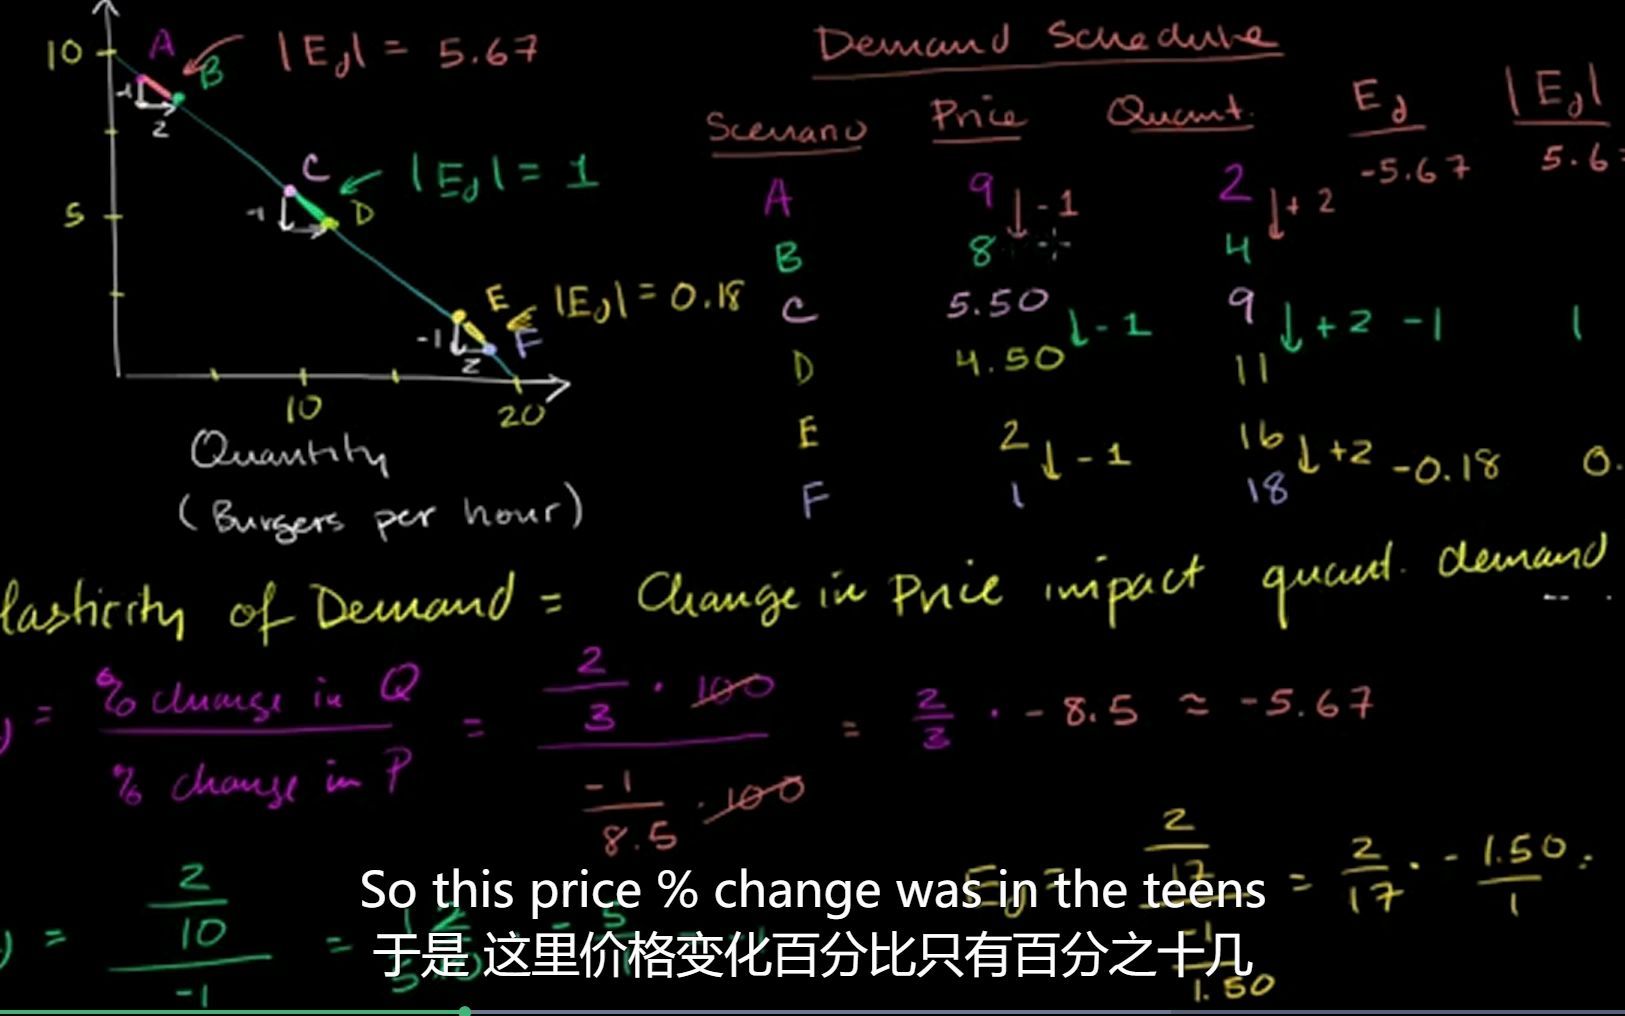 10 A B |Ed| = 5.67
-1
2
C |Ed| = 1
5 -1 D
E |Ed| = 0.18
-1 F
2
10 20
Quantity
(Burgers per hour)
Demand Schedule
Scenario Price Quant. Ed |Ed|
-5.67 5.6
A 9 ↓ -1 2 ↓ +2
B 8 4
C 5.50 ↓ -1 9 ↓ +2 -1 1
D 4.50 11
E 2 ↓ -1 16 ↓ +2 -0.18 0.
F 1 18
lasticity of Demand = Change in Price impact quant. demand
) = % change in Q / % change in P = 2/3 · 100 / -1/8.5 · 100 = 2/3 · - 8.5 ≈ -5.67
) = 2/10 / -1 =
2/17 / -1/1.50 = 2/17 · - 1.50/1
So this price % change was in the teens
于是 这里价格变化百分比只有百分之十几